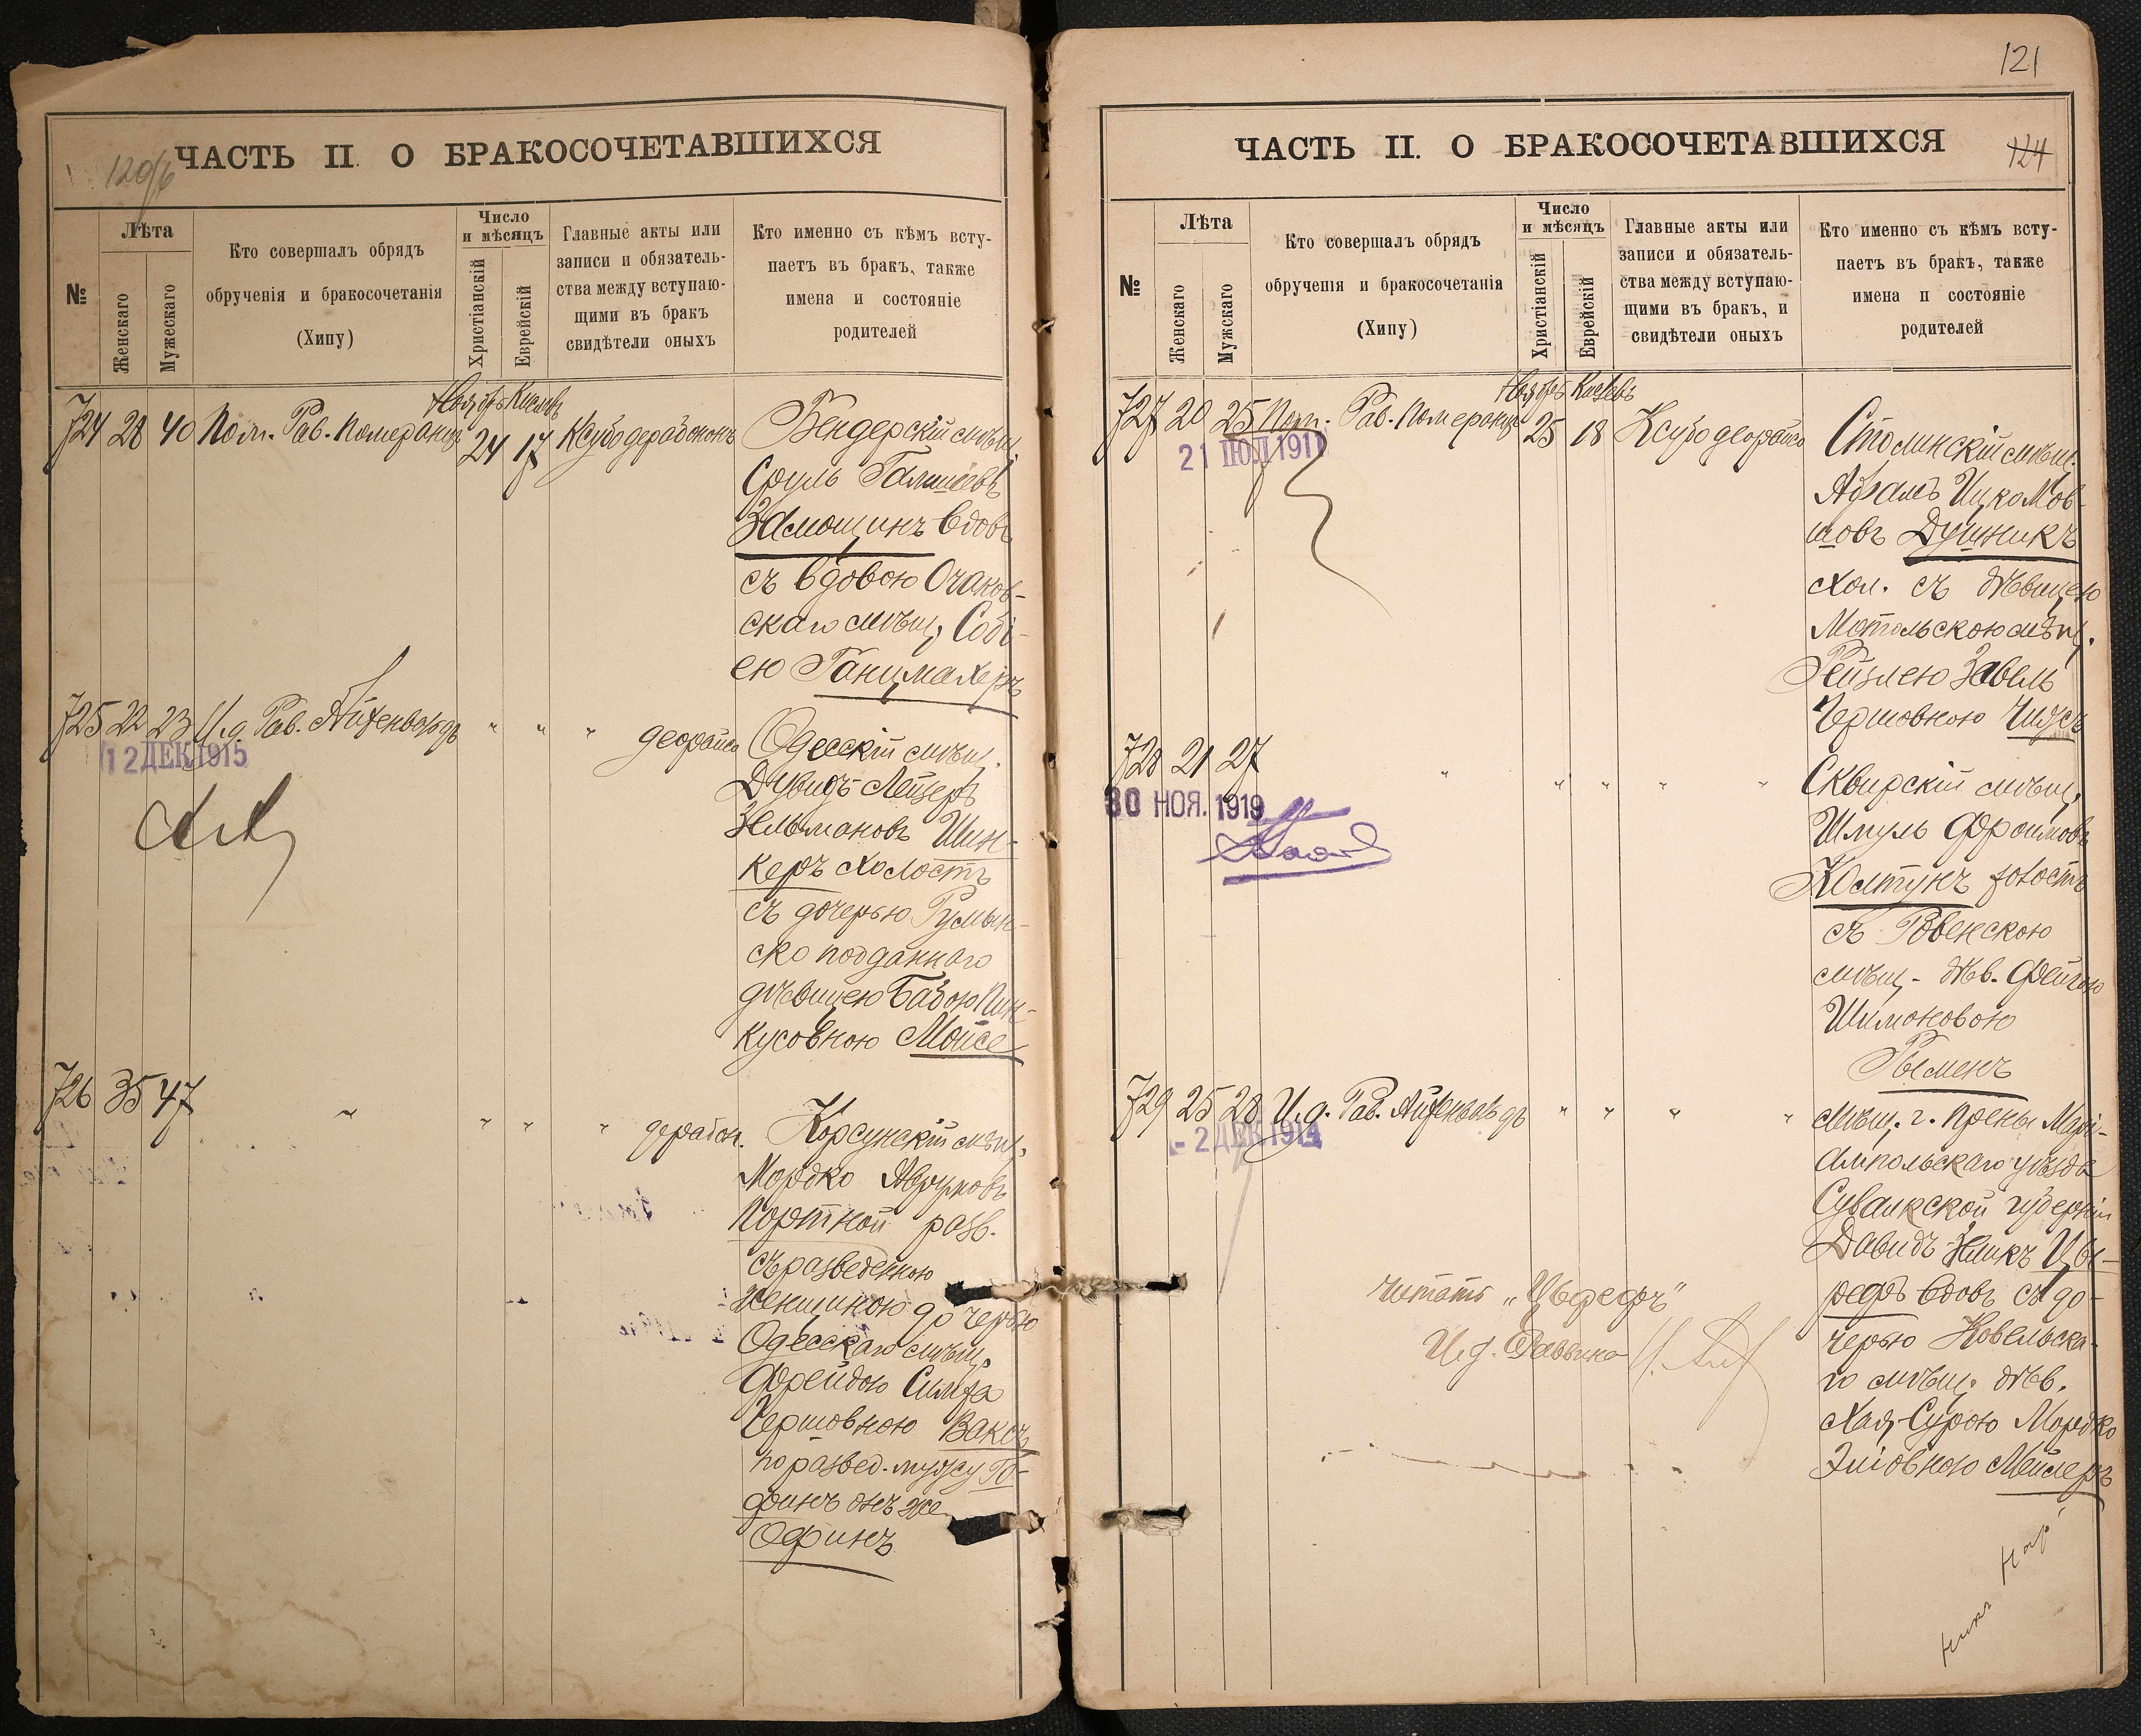 120/б
ЧАСТЬ II. О БРАКОСОЧЕТАВШИХСЯ
№
Лѣта
Женскаго
Мужескаго
Кто совершалъ обрядъ
обрученія и бракосочетанія
(Хипу)
Число
и мѣсяцъ
Христіанскій
Еврейскій
Главные акты или
записи и обязатель-
ства между вступаю-
щими въ бракъ
свидѣтели оныхъ
Кто именно съ кѣмъ всту-
паетъ въ бракъ, также
имена и состояніе
родителей
Ноябрь Кислевъ
724 28 40 Пом. Рав. Померанцъ 24 17
Бендерскій мѣщ.
Сруль
Замощинъ вдовъ
съ вдовою Очаков-
скаго мѣщ. Собі-
ею Ганцмахеръ
725 22 23 И.д. Рав. Айзенвардъ " " "
12 ДЕК 1915
Одесскій мѣщ.
Дувидъ-Лейзеръ
Зельмановъ Шин-
керъ холостъ
съ дочерью Румын-
ско подданнаго
дѣвицею Бабою Пин-
кусовною Мойсе
726 35 47 " " " "
Корсунскій мѣщ.
Мордко Аврумовъ
Портной разв.
съ разведенною
женщиною дочерью
Одесскаго мѣщ.
Фрейдою Симха
Гершовною Ваксъ
по развед. мужу Го-
финъ онъ же
Офинъ
121
ЧАСТЬ II. О БРАКОСОЧЕТАВШИХСЯ
124
№
Лѣта
Женскаго
Мужскаго
Кто совершалъ обрядъ
обрученія и бракосочетанія
(Хипу)
Число
и мѣсяцъ
Христіанскій
Еврейскій
Главные акты или
записи и обязатель-
ства между вступаю-
щими въ бракъ, и
свидѣтели оныхъ
Кто именно съ кѣмъ всту-
паетъ въ бракъ, также
имена и состояніе
родителей
Ноябрь Кислевъ
727 20 25 Пом. Рав. Померанцъ 25 18
21 ІЮЛ 1911
Столинскій мѣщ.
Абрамъ Ицко Мов-
шовъ Душникъ
хол. съ дѣвицею
Мотольскою мѣщ.
Рейзлею Завель
Гершовною Чижъ
728 21 27 " " " " "
30 НОЯ. 1919
Сквирскій мѣщ.
Шмуль Фроимовъ
Колтунъ холостъ
съ Ровенскою
мѣщ. дѣв. Фейгою
Шимоновою
Рыменъ
729 25 28 И.д. Рав. Айзенвардъ " " " "
- 2 ДЕК 1914
мѣщ. г. Прены Марі-
ампольскаго уѣзда
Сувалкской губерніи
Давидъ Зеликъ Цы-
реръ вдовъ съ до-
черью Ковельска-
го мѣщ. дѣв.
Хая-Сурою Мордко
Эліовною Мейлеръ
читать
И.д. Раввина